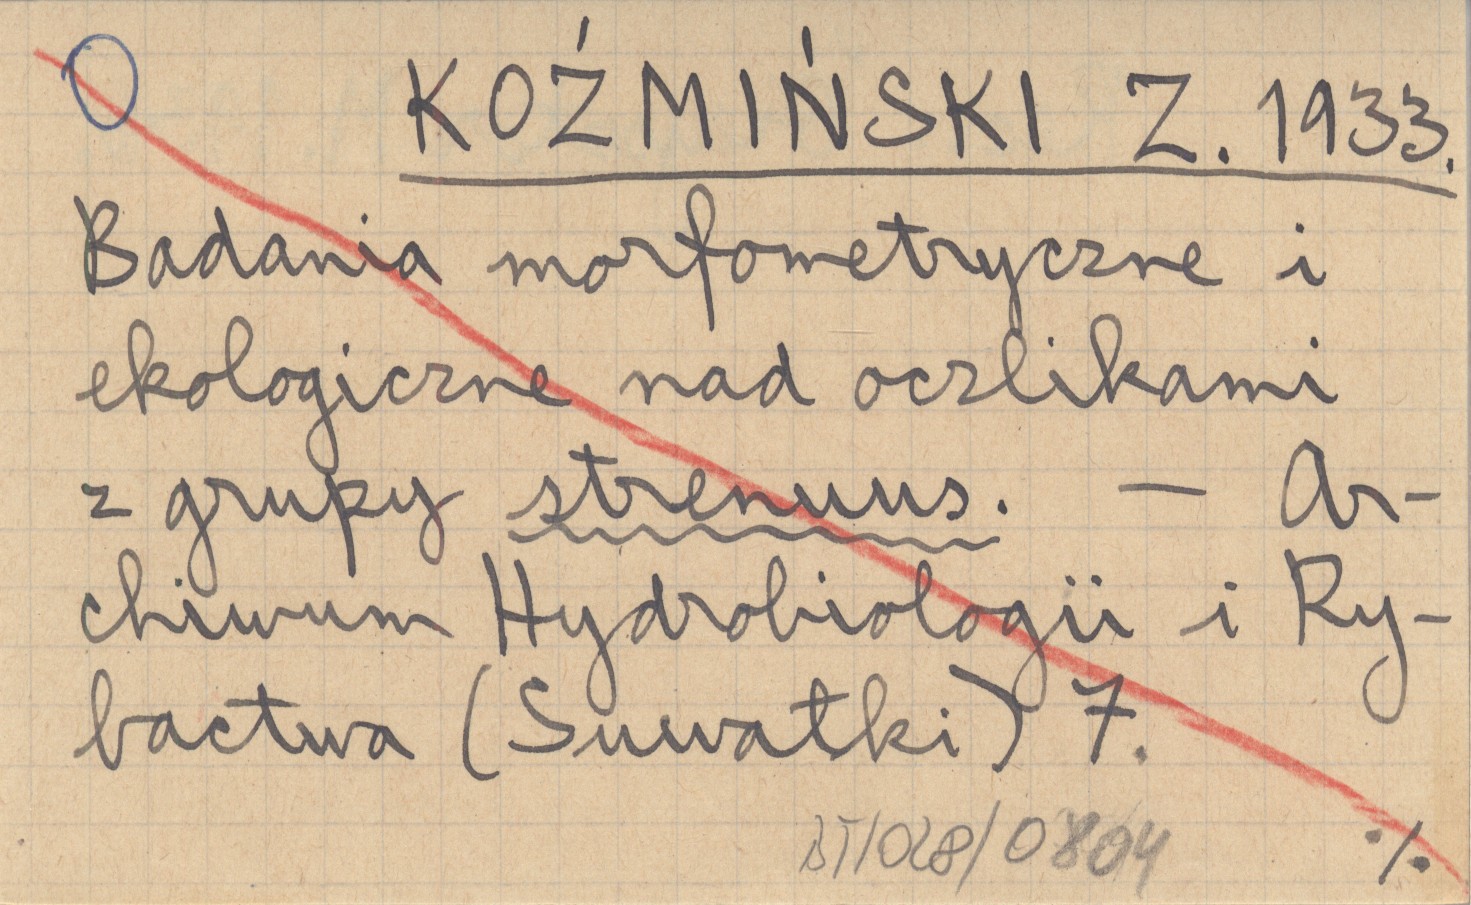 KOŹMIŃSKI Z. 1933.
Badania morfometryczne i
ekologiczne nad oczlikami
z grupy strenuus. — Ar-
chiwum Hydrobiologii i Ry-
bactwa (Suwałki) 7.
BT/028/0804
·/.